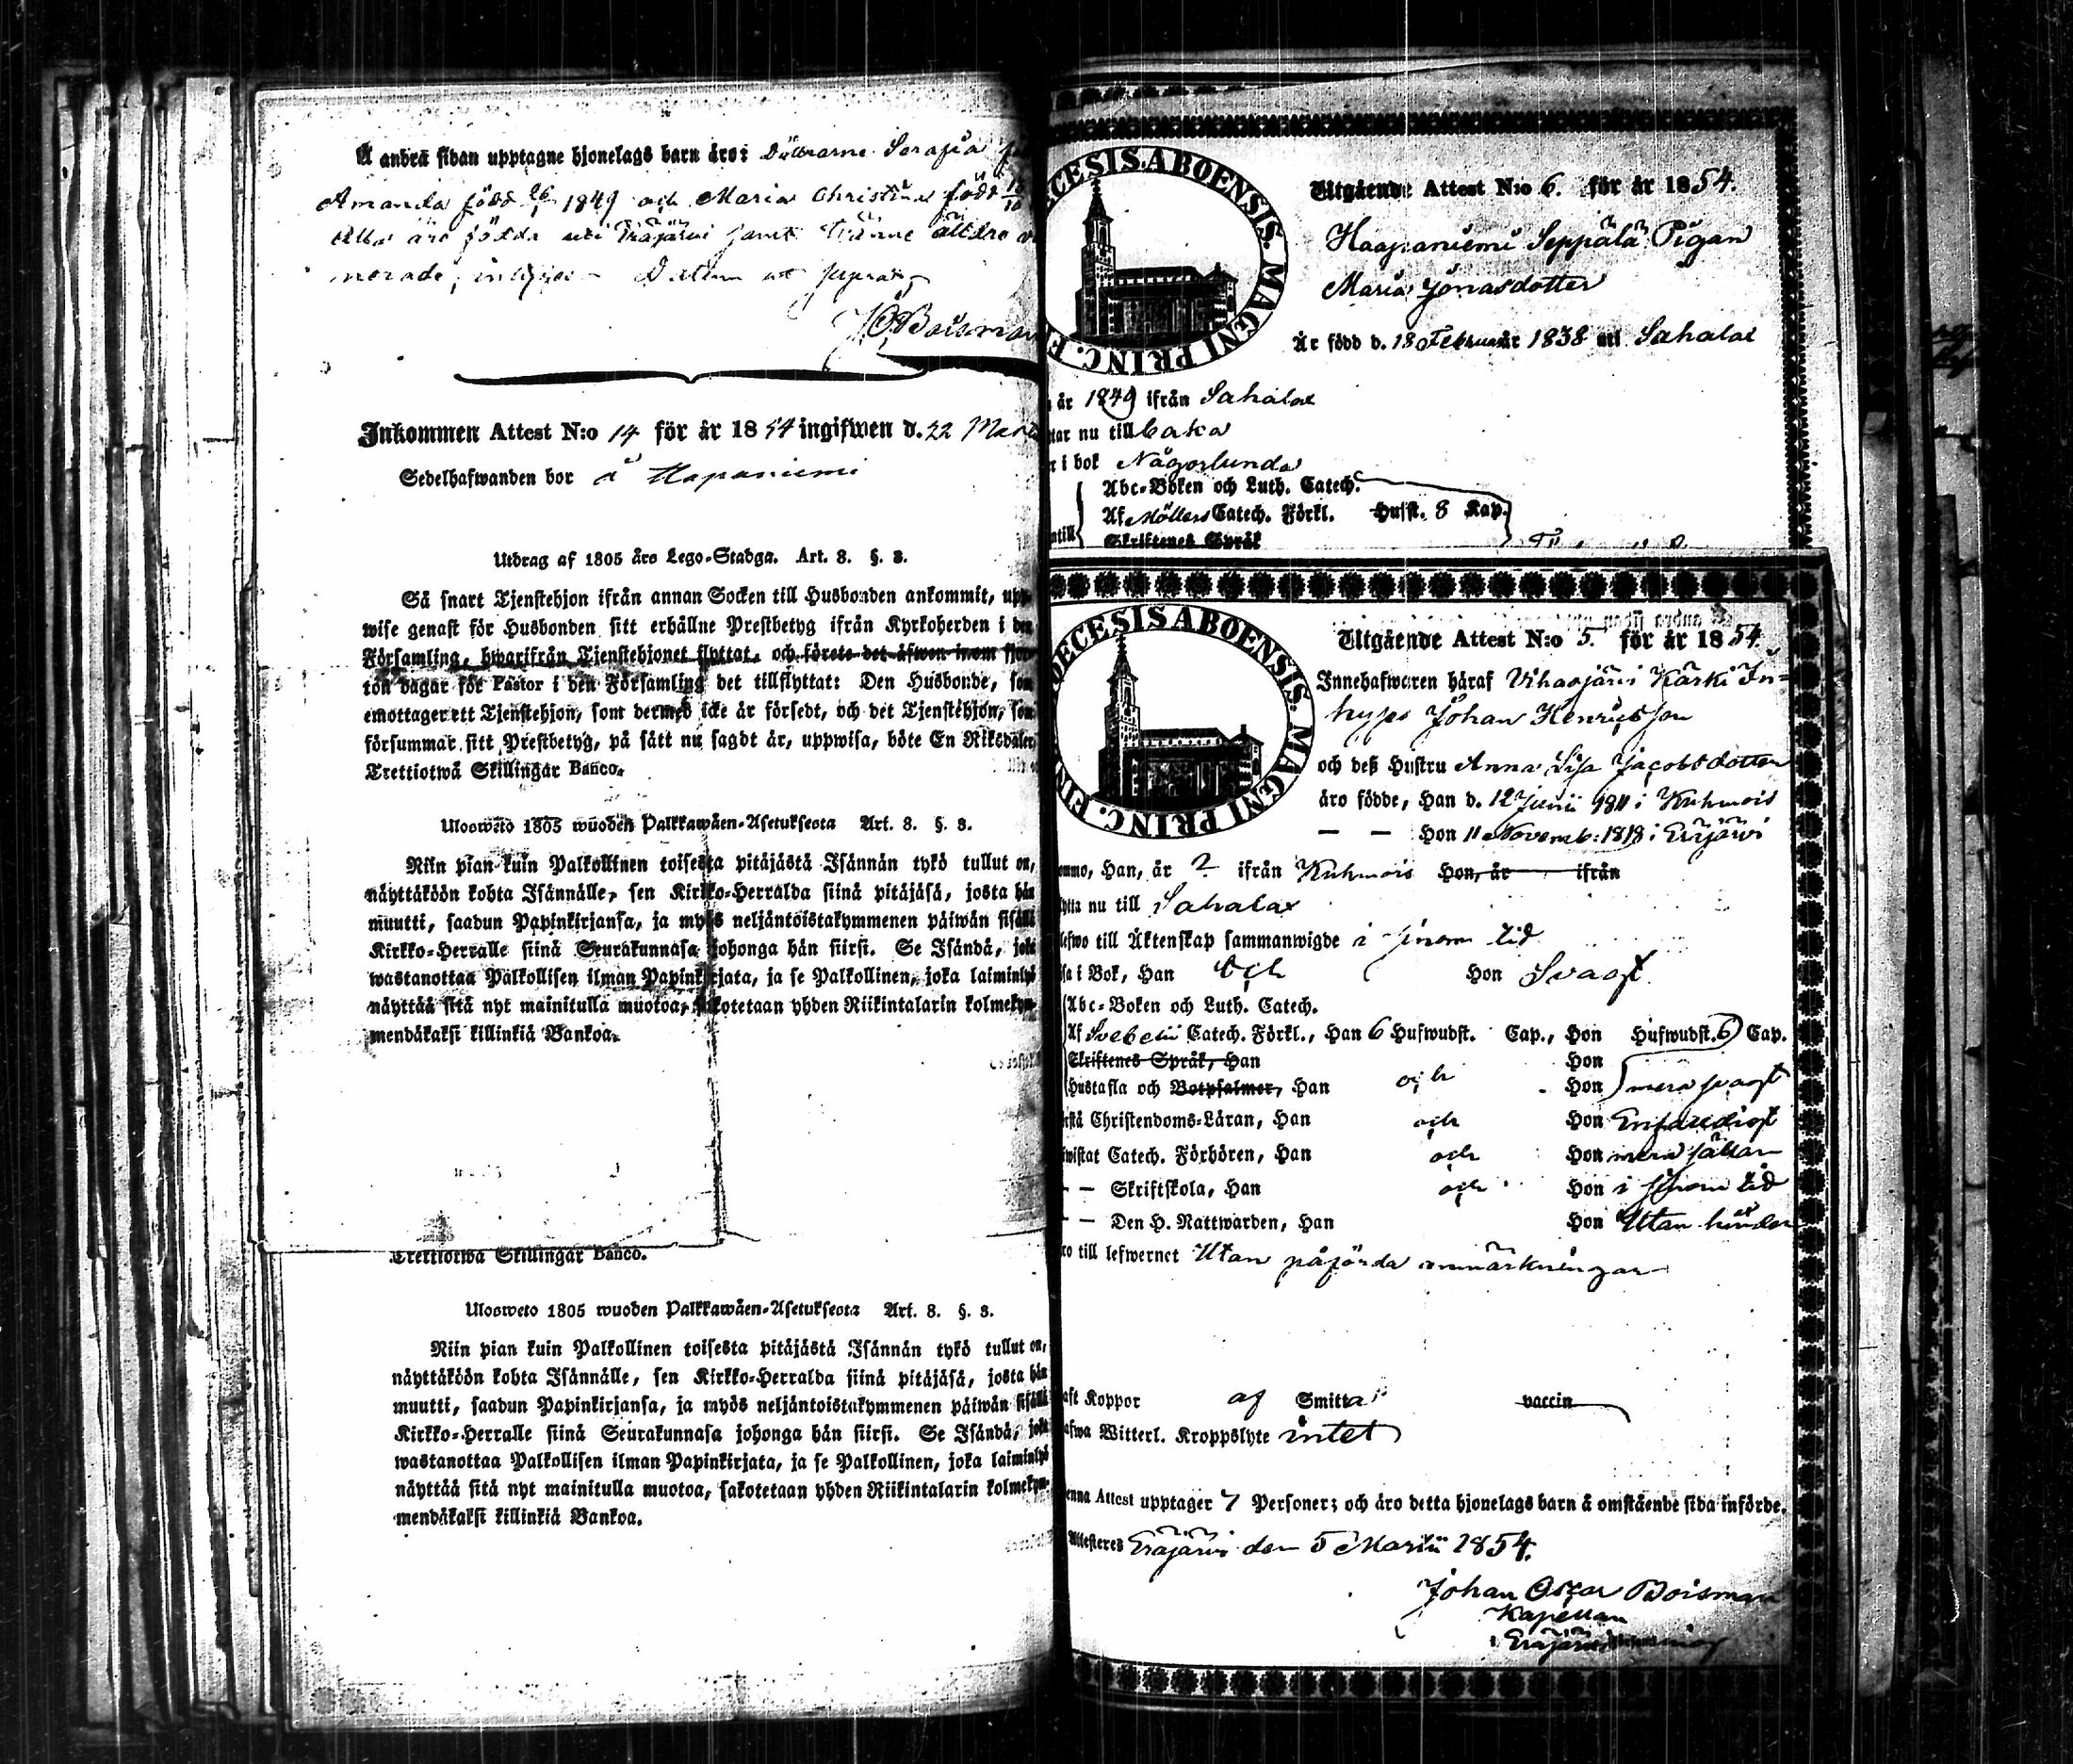 Å andra sidan upptagne hjonelags barn äro: Döttrarne Serafia
Amanda född 26 1849 och Maria Christina född
Alla äro födda uti Eräjärvi samt
Datum ut supra
J O Boisman
Inkommen Attest N:o 14 för år 1854 ingifwen d. 22 Martii
Sedelhafwanden bor å Hapaniemi
Utdrag af 1805 års Lego-Stadga. Art. 8. §. 8.
Så snart Tjenstehjon ifrån annan Socken till Husbonden ankommit, upp-
wise genast för Husbonden sitt erhållne Prestbetyg ifrån Kyrkoherden i den
Församling, hwarifrån Tjenstehjonet flyttat, och förete det äfwen inom fjor-
ton dagar för Pastor i den Församling det tillflyttat: Den Husbonde, som
emottager ett Tjenstehjon, som dermed icke är försedt, och det Tjenstehjon, som
försummar sitt Prestbetyg, på sätt nu sagdt är, uppwisa, böte En Riksdaler
Trettiotwå Skillingar Banco.
Ulosweto 1805 wuoden Palkkawäen-Asetuksesta Art. 8. §. 8.
Niin pian kuin Palkollinen toisesta pitäjästä Isännän tykö tullut on,
näyttäköön kohta Isännälle, sen Kirkko-Herralda siinä pitäjäsä, josta hän
muutti, saadun Papinkirjansa, ja myös neljäntoistakymmenen päiwän sisällä
Kirkko-Herralle siinä Seurakunnasa johonga hän siirsi. Se Isändä, joka
wastanottaa Palkollisen ilman Papinkirjata, ja se Palkollinen, joka laiminlyö
näyttää sitä nyt mainitulla muotoa, sakotetaan yhden Riikintalarin kolmekym-
mendäkaksi killinkiä Bankoa.
Trettiotwå Skillingar Banco.
Ulosweto 1805 wuoden Palkkawäen-Asetuksesta Art. 8. §. 8.
Niin pian kuin Palkollinen toisesta pitäjästä Isännän tykö tullut on,
näyttäköön kohta Isännälle, sen Kirkko-Herralda siinä pitäjäsä, josta hän
muutti, saadun Papinkirjansa, ja myös neljäntoistakymmenen päiwän sisällä
Kirkko-Herralle siinä Seurakunnasa johonga hän siirsi. Se Isändä, joka
wastanottaa Palkollisen ilman Papinkirjata, ja se Palkollinen, joka laiminlyö
näyttää sitä nyt mainitulla muotoa, sakotetaan yhden Riikintalarin kolmekym-
mendäkaksi killinkiä Bankoa.
ECESIS ABOENSIS. MAGNI PRINC. F
Utgående Attest N:o 6. för år 1854.
Haapaniemi Seppälä Pigan
Maria Jonasdotter
Är född d. 18 Februar 1838 uti Sahalax
år 1849 ifrån Sahalax
tar nu tillbaka
i bok Någorlunda
Abc-Boken och Luth. Catech.
Af Möllers Catech. Förkl. Husst. 8 Kap.
Skriftenes Språk
OECESIS ABOENSIS. MAGNI PRINC. FIN
Utgående Attest N:o 5. för år 1854.
Innehafwaren häraf Vihasjärvi Kärki In=
hyses Johan Henricsson
och dess Hustru Anna Lisa Jacobsdotter
äro födde, Han d. 12 Junii 1811 i Kuhmois
— — Hon 11 Novemb: 1818 i Eräjärvi
ommo, Han, år ? ifrån Kuhmois Hon, år ifrån
ytta nu till Sahalax
efwo till Äktenskap sammanwigde i sinom tid
sa i Bok, Han och Hon Svagt
Abc-Boken och Luth. Catech.
Af Svebelii Catech. Förkl., Han 6 Hufwudst. Cap., Hon Hufwudst. 6 Cap.
Skriftenes Språk, Han Hon
Hustafla och Botpsalmer, Han och Hon mera svagt
rstå Christendoms-Läran, Han och Hon Enfaldigt
wistat Catech. Förhören, Han och Hon mera sällan
— — Skriftskola, Han och Hon i sinom tid
— — Den H. Nattwarden, Han Hon Utan hinder
ro till lefwernet Utan påförda anmärkningar
aft Koppor af Smitta vaccin
afwa Witterl. Kroppslyte intet
enna Attest upptager 7 Personer; och äro detta hjonelags barn å omstående sida införde.
Attesteres Eräjärvi den 5 Martii 1854.
Johan Oscar Boisman
Kapellan
i Eräjärvi